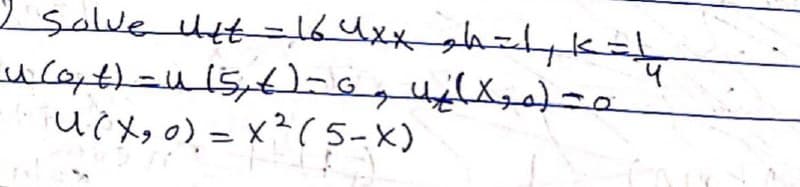 ) Solve utt = 16 uxx , h=1, k=1/4
u(0,t) = u(5,t) = 0 , ut(x,0) = 0
u(x,0) = x²(5-x)